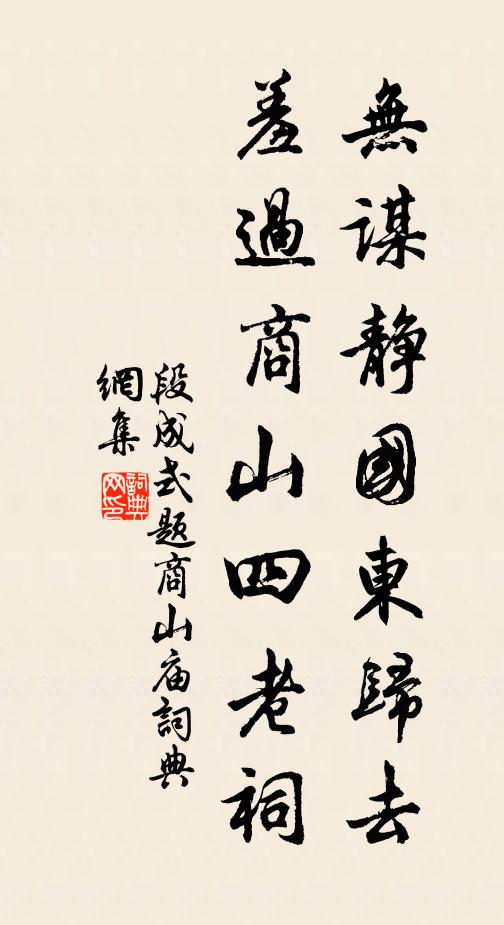 無謀静國東歸去
羞過商山四老祠
段成式題商山庙詞典
網集
詞典網印